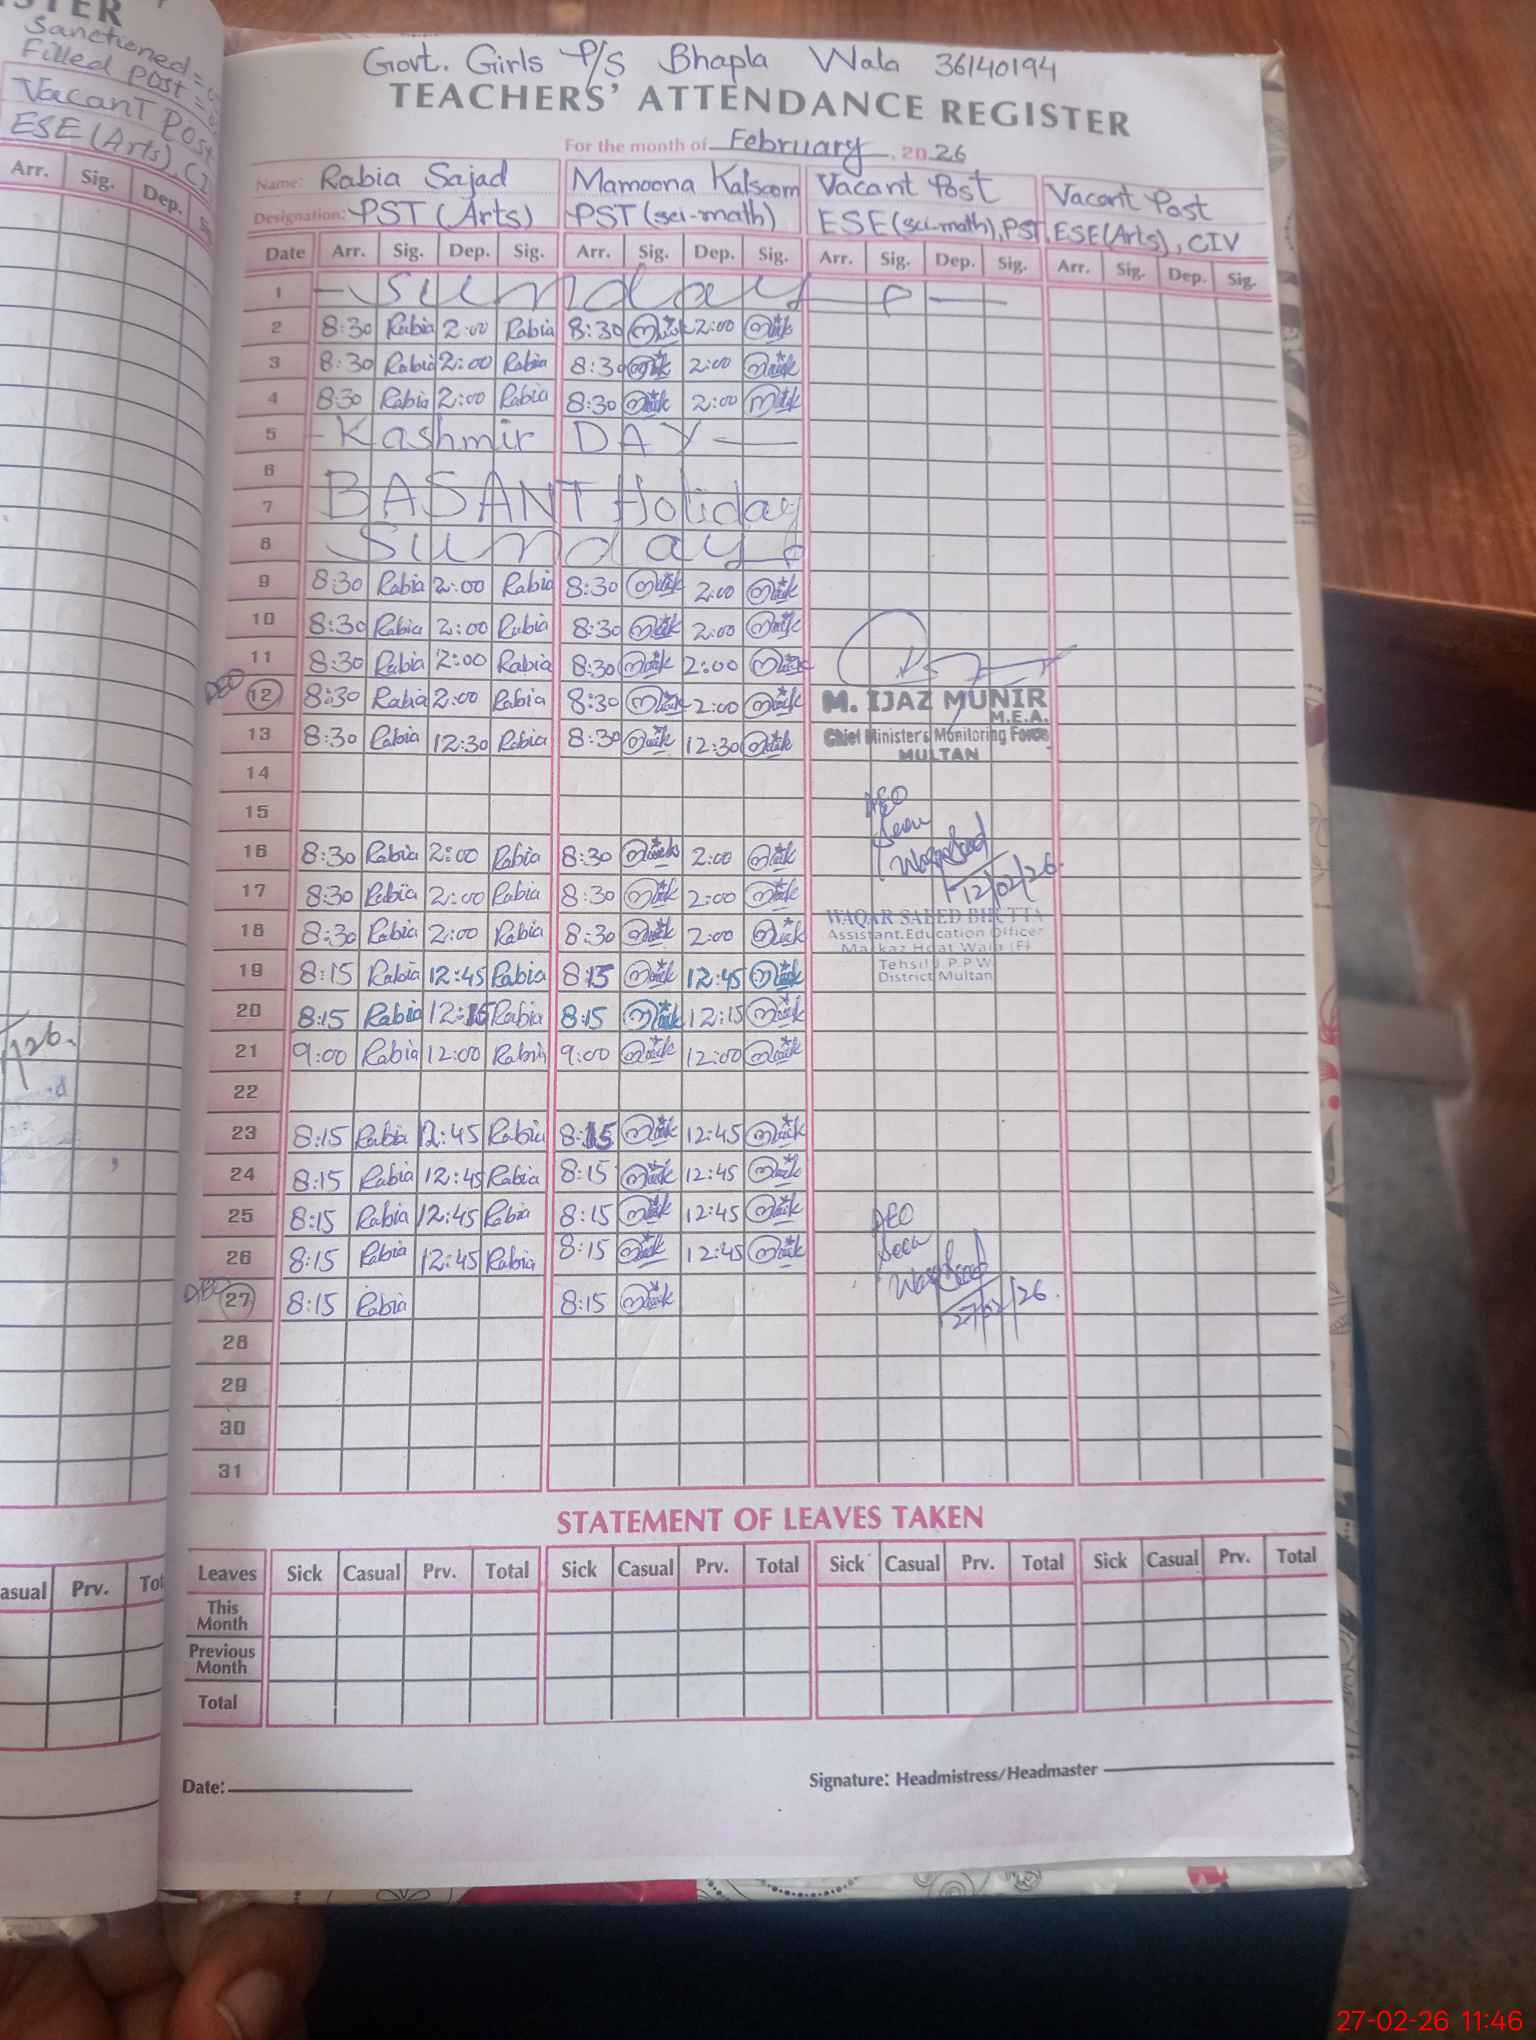 STER
Sanctioned =
Filled Post =
Vacant Post
ESE (Arts), CI
Arr. Sig. Dep.
asual Prv. Tot
Govt. Girls P/S Bhapla Wala 36140194
TEACHERS' ATTENDANCE REGISTER
For the month of February, 2026
Name: Rabia Sajad Mamoona Kalsoom Vacant Post Vacant Post
Designation: PST (Arts) PST (sci-math) ESE (sci-math), PST ESE (Arts), CIV
Date Arr. Sig. Dep. Sig. Arr. Sig. Dep. Sig. Arr. Sig. Dep. Sig. Arr. Sig. Dep. Sig.
1 Sunday
2 8:30 Rabia 2:00 Rabia 8:30 2:00
3 8:30 Rabia 2:00 Rabia 8:30 2:00
4 8:30 Rabia 2:00 Rabia 8:30 2:00
5 Kashmir DAY
6
7 BASANT Holiday
8 Sunday
9 8:30 Rabia 2:00 Rabia 8:30 2:00
10 8:30 Rabia 2:00 Rabia 8:30 2:00
11 8:30 Rabia 2:00 Rabia 8:30 2:00
12 8:30 Rabia 2:00 Rabia 8:30 2:00
M. IJAZ MUNIR
M.E.A.
13 8:30 Rabia 12:30 Rabia 8:30 12:30
Chief Minister's Monitoring Force
MULTAN
14
15
AEO
16 8:30 Rabia 2:00 Rabia 8:30 2:00
12/02/26.
17 8:30 Rabia 2:00 Rabia 8:30 2:00
18 8:30 Rabia 2:00 Rabia 8:30 2:00
WAQAR SAEED BHUTTA
Assistant Education Officer
Tehsil P.P.W
District Multan
19 8:15 Rabia 12:45 Rabia 8:15 12:45
20 8:15 Rabia 12:15 Rabia 8:15 12:15
21 9:00 Rabia 12:00 Rabia 9:00 12:00
22
23 8:15 Rabia 12:45 Rabia 8:15 12:45
24 8:15 Rabia 12:45 Rabia 8:15 12:45
25 8:15 Rabia 12:45 Rabia 8:15 12:45
AEO
26 8:15 Rabia 12:45 Rabia 8:15 12:45
27 8:15 Rabia 8:15
27/02/26.
28
29
30
31
STATEMENT OF LEAVES TAKEN
Leaves Sick Casual Prv. Total Sick Casual Prv. Total Sick Casual Prv. Total Sick Casual Prv. Total
This Month
Previous Month
Total
Date:
Signature: Headmistress/Headmaster
27-02-26 11:46